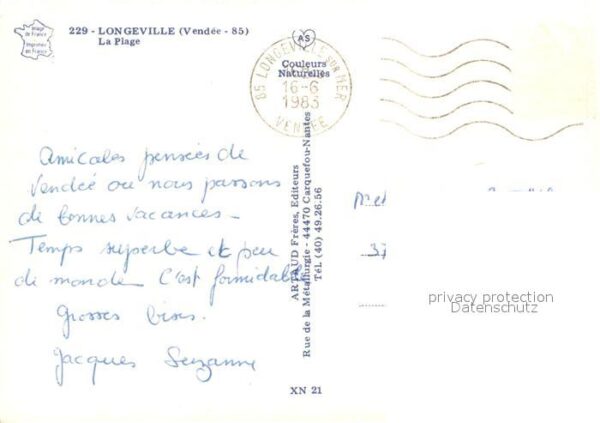 Image
de France
Imprimée
en France
229 - LONGEVILLE (Vendée - 85)
La Plage
AS
Couleurs
Naturelles
85 LONGEVILLE SUR MER
16-6
1983
VENDEE
Amicales pensées de
Vendée ou nous passons
de bonnes vacances -
Temps superbe et peu
de monde C'est formidable
Grosses bises.
Jacques Suzanne
ARTAUD Frères, Editeurs
Rue de la Métallurgie - 44470 Carquefou-Nantes
Tél. (40) 49.26.56
XN 21
37
privacy protection
Datenschutz